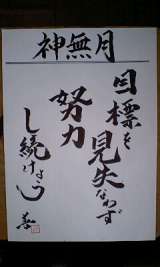 神無月
目標を
見失なわず
努力
し続けよう